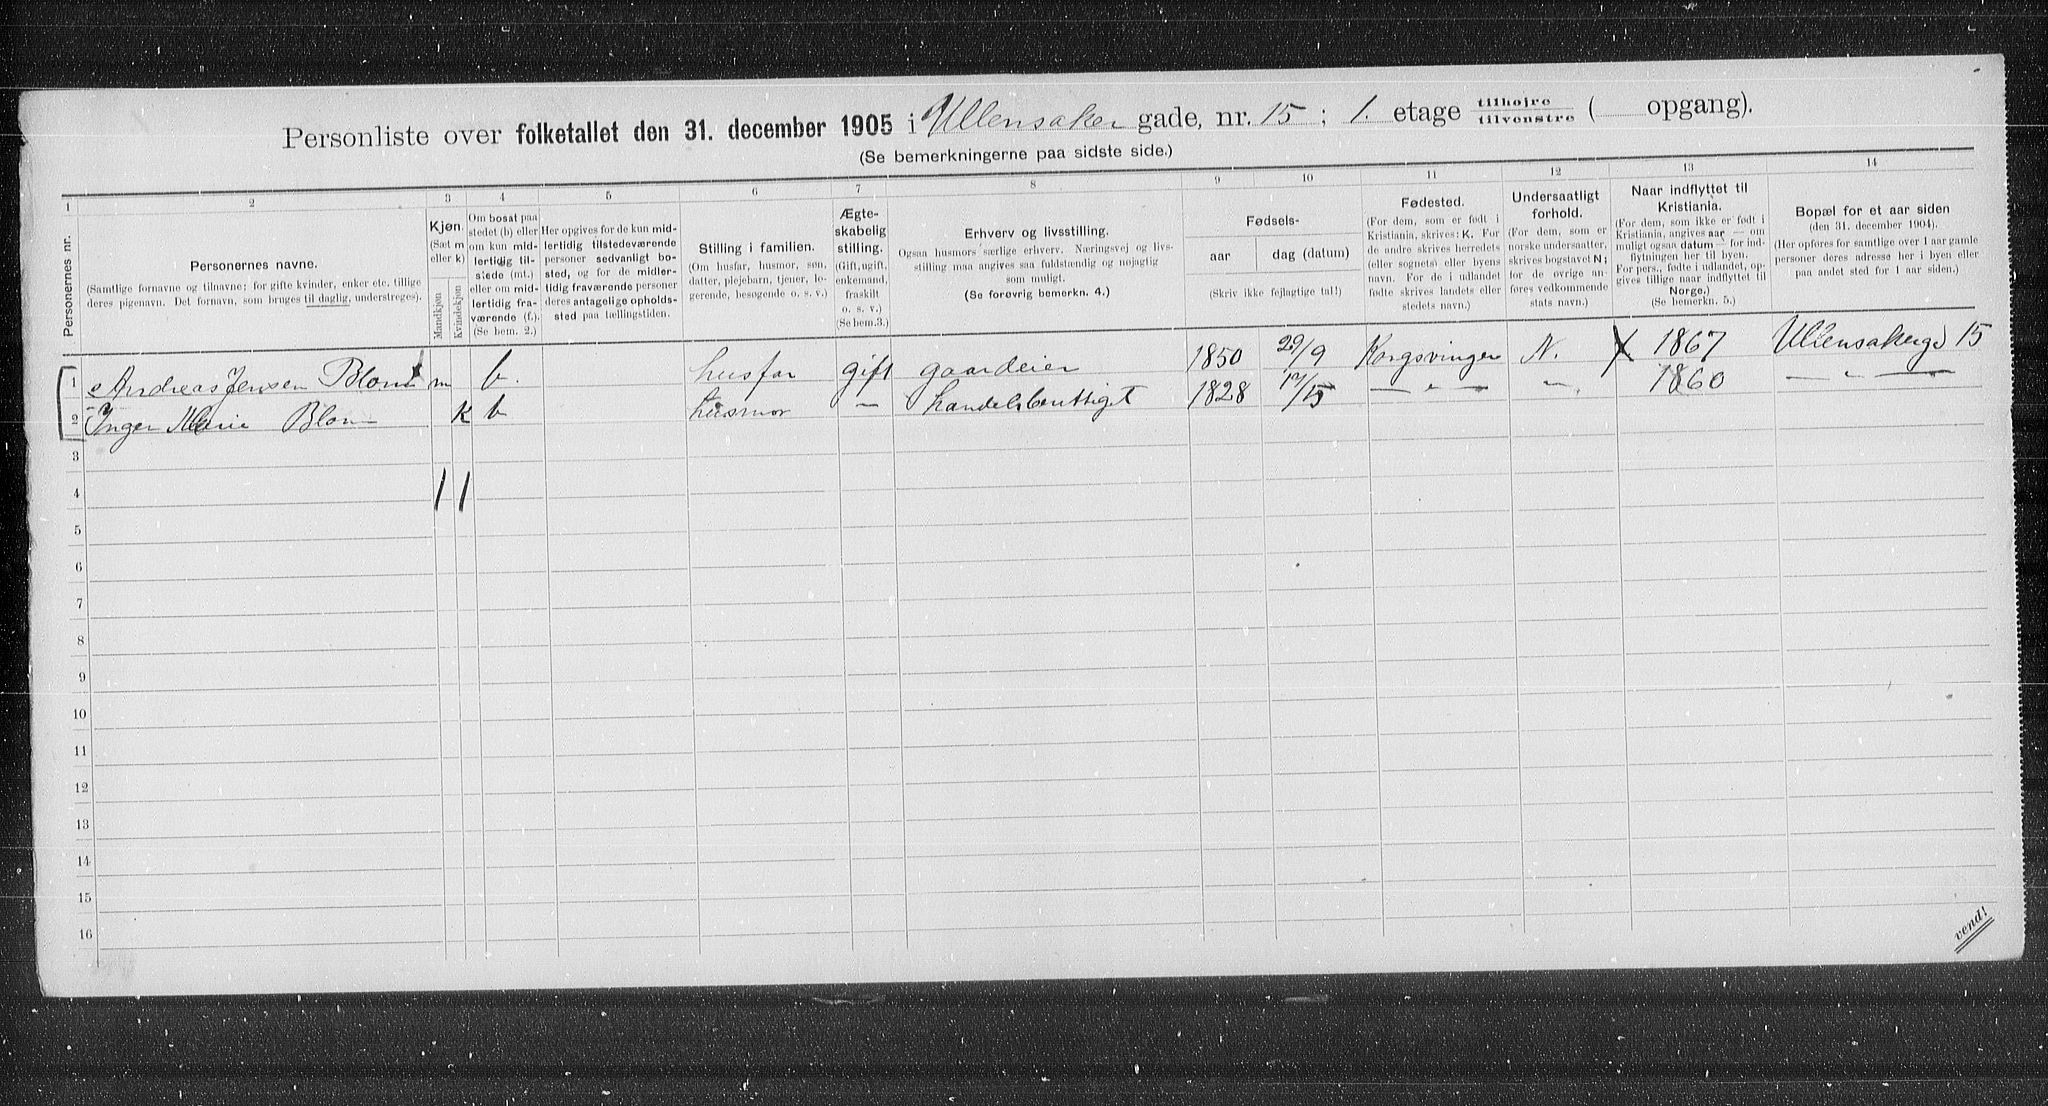 Personliste over folketallet den 31. december 1905 i Ullensaker gade, nr. 15 ; 1. etage tilhøjre tilvenstre ( opgang).
(Se bemerkningerne paa sidste side.)
1 2 3 4 5 6 7 8 9 10 11 12 13 14
Personernes nr.
Personernes navne.
(Samtlige fornavne og tilnavne; for gifte kvinder, enker etc. tillige
deres pigenavn. Det fornavn, som bruges til daglig, understreges).
Kjøn.
(Sæt m
eller k)
Mandkjøn
Kvindekjøn
Om bosat paa
stedet (b) eller
om kun mid-
lertidig til-
stede (mt.)
eller om mid-
lertidig fra-
værende (f.).
(Se bem. 2.)
Her opgives for de kun mid-
lertidig tilstedeværende
personer sedvanligt bo-
sted, og for de midler-
tidig fraværende personer
deres antagelige opholds-
sted paa tællingstiden.
Stilling i familien.
(Om husfar, husmor, søn,
datter, plejebarn, tjener, lo-
gerende, besøgende o. s. v.)
Ægte-
skabelig
stilling.
(Gift, ugift,
enkemand,
fraskilt
o. s. v.)
(Se bem.3.)
Erhverv og livsstilling.
Ogsaa husmors særlige erhverv. Næringsvej og livs-
stilling maa angives saa fuldstændig og nøjagtig
som muligt.
(Se forøvrig bemerkn. 4.)
Fødsels-
aar
dag (datum)
(Skriv ikke fejlagtige tal!)
Fødested.
(For dem, som er født i
Kristiania, skrives: K. For
de andre skrives herredets
(eller sognets) eller byens
navn. For de i udlandet
fødte skrives landets eller
stedets navn.)
Undersaatligt
forhold.
(For dem, som er
norske undersaatter,
skrives bogstavet N;
for de øvrige an-
føres vedkommende
stats navn.)
Naar indflyttet til
Kristiania.
(For dem, som ikke er født i
Kristiania, angives aar — om
muligt ogsaa datum — for ind-
flytningen her til byen.
For pers., fødte i udlandet, op-
gives tillige naar indflyttet til
Norge.)
(Se bemerkn. 5.)
Bopæl for et aar siden
(den 31. december 1904).
(Her opføres for samtlige over 1 aar gamle
personer deres adresse her i byen eller
paa andet sted for 1 aar siden.)
1 Andreas Jensen Blom m b. husfar gift gaardeier 1850 29/9 Kongsvinger N. 1867 Ullensakergd 15
2 Inger Marie Blom K b husmor — 1828 17/5 — " — — " — 1860 — " —
3
4 1 1
5
6
7
8
9
10
11
12
13
14
15
16
vend!